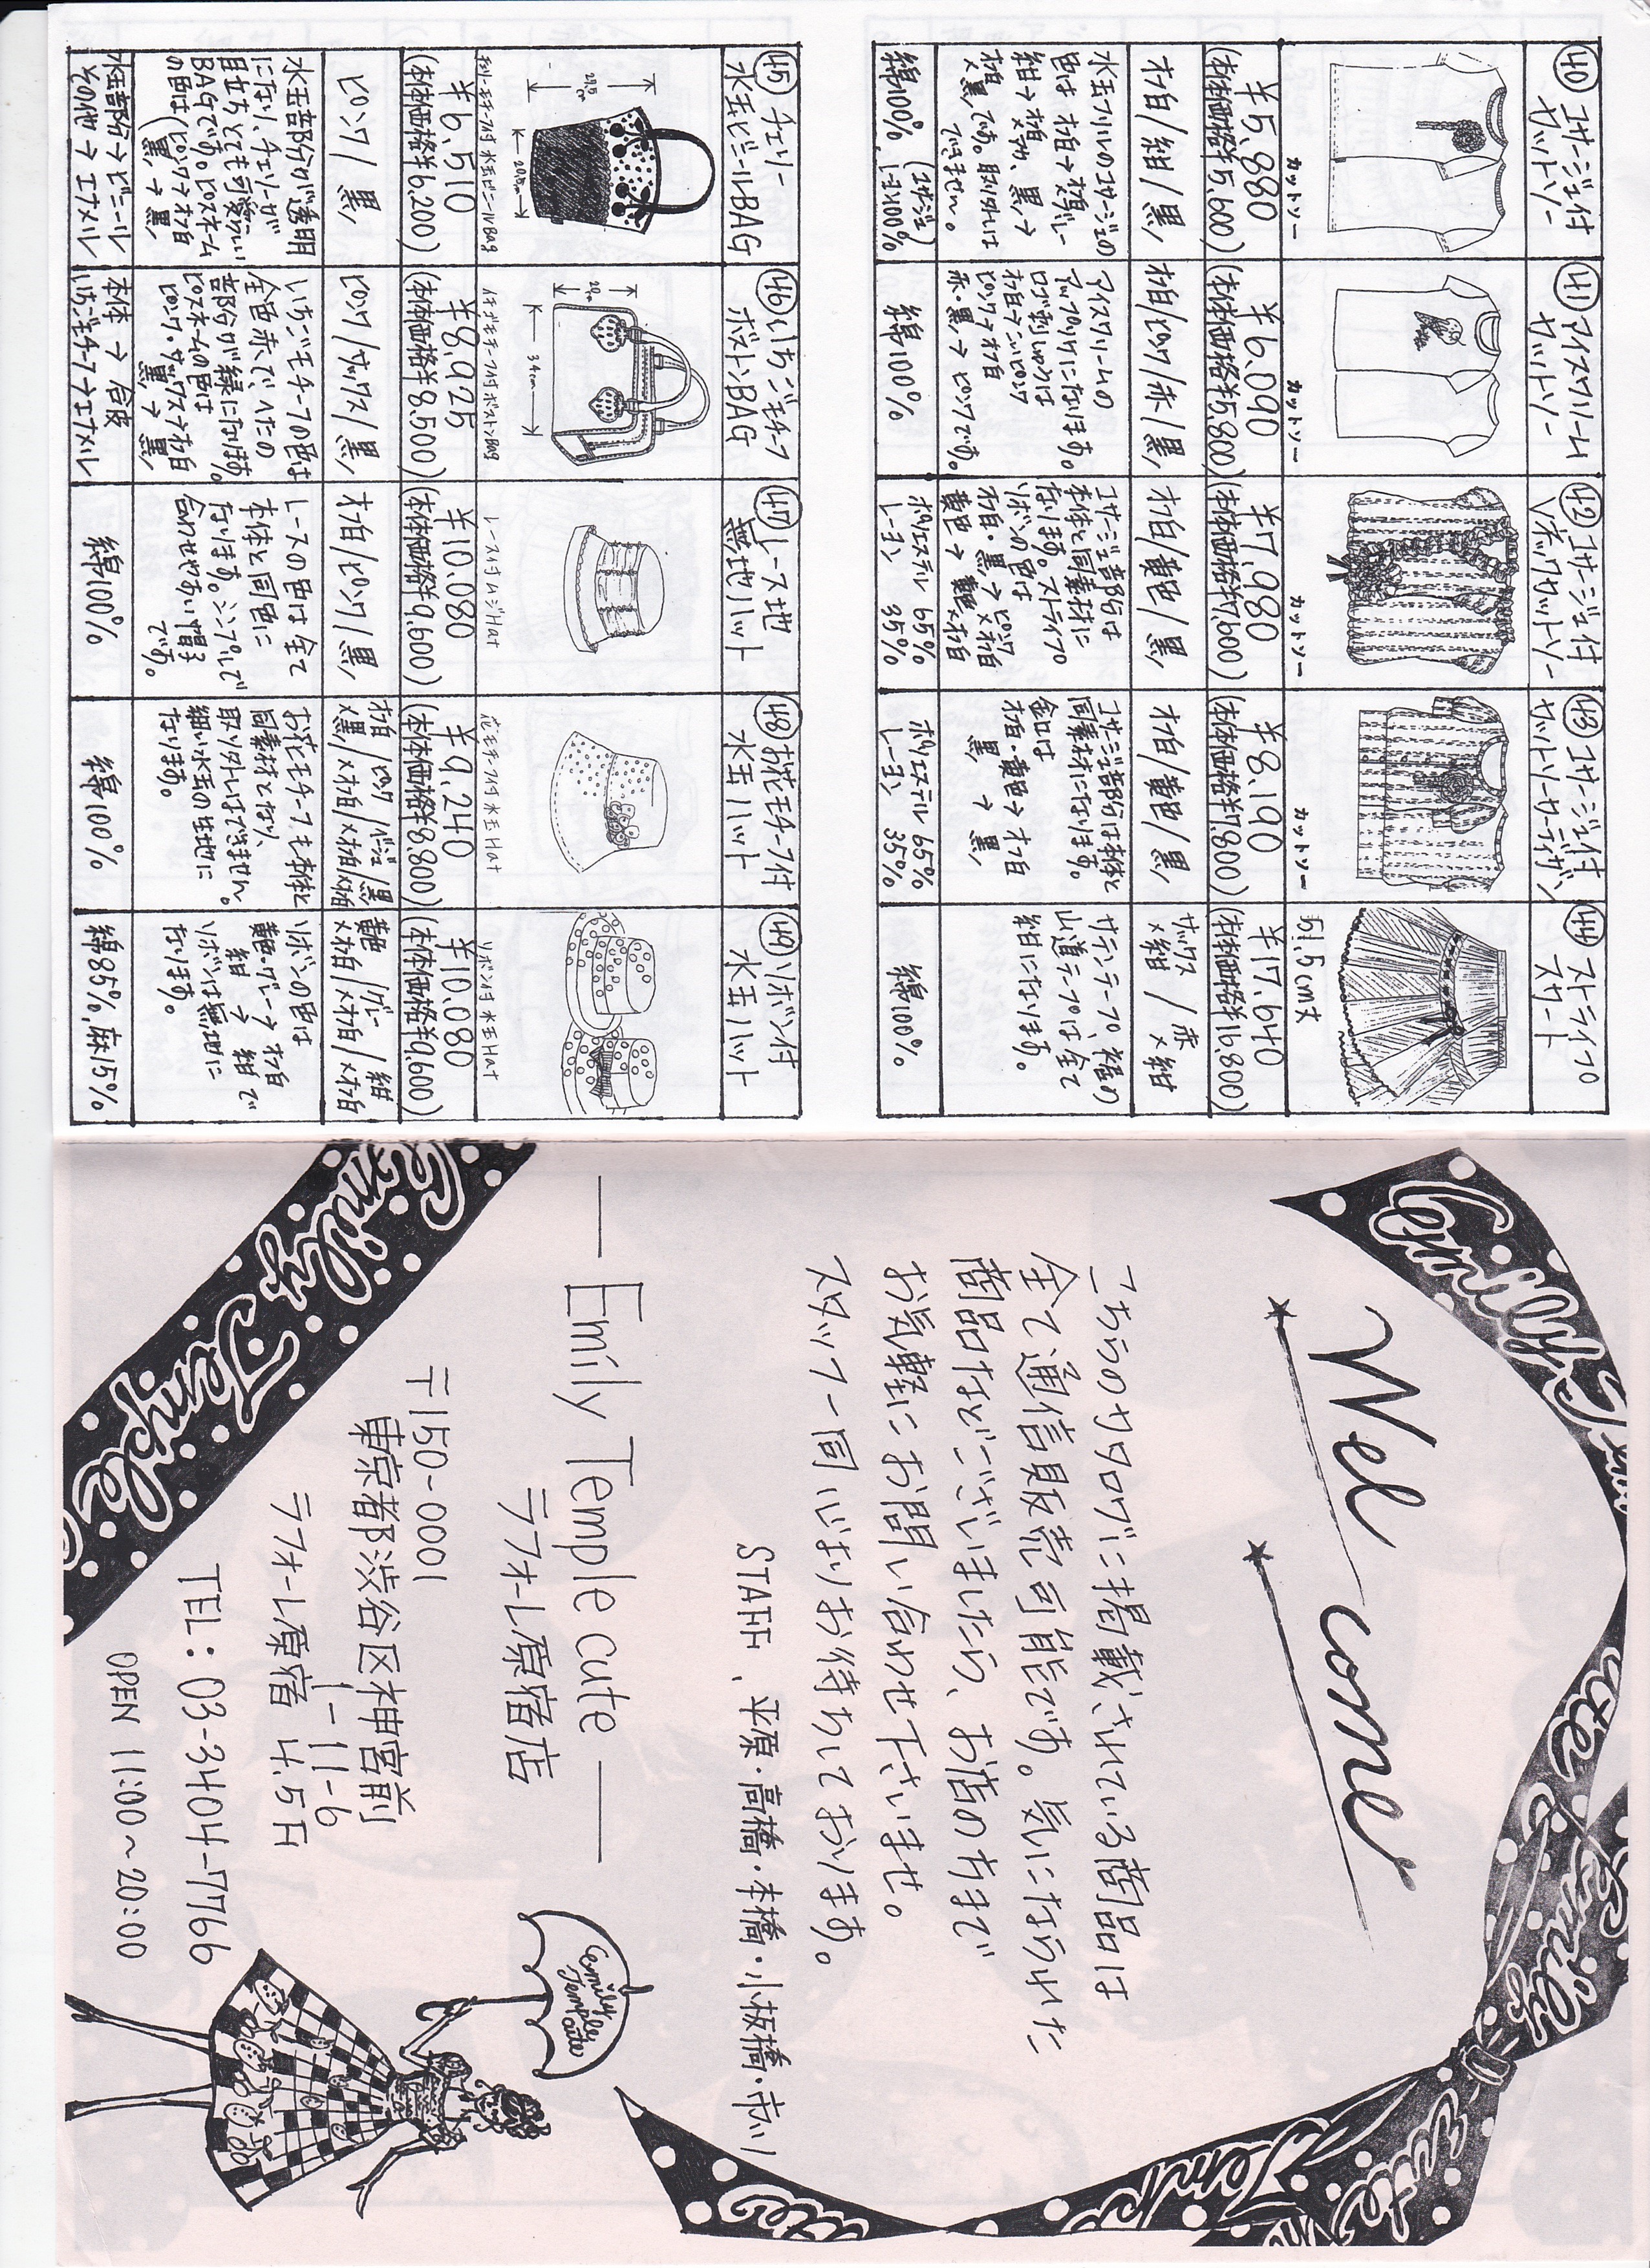 ㊵ コサージュ付
カットソー
カットソー
¥5,880
(本体価格¥5,600)
オ白/紺/黒
水玉フリルのコサージュの
色は オ白→オ白×グレー
紺→オ白×紺、黒→
オ白×黒です。取り外しは
できません。
綿100% (コサージュ)
レーヨン100%
㊶ アイスクリーム
カットソー
カットソー
¥6,090
(本体価格¥5,800)
オ白/ピンク/赤/黒
アイスクリームの
アップリケになります。
ロゴ刺しゅうは
オ白→こいピンク
ピンク→オ白
赤・黒→ピンクです。
綿100%
㊷ コサージュ付
Vネックカットソー
カットソー
¥7,980
(本体価格¥7,600)
オ白/藍色/黒
コサージュ部分は
本体と同素材に
なります。ストライプ
リボンの色は
オ白・黒→ピンク×オ白
藍色→藍色×オ白
ポリエステル 65%
レーヨン 35%
㊸ コサージュ付
カットソーカーディガン
カットソー
¥8,190
(本体価格¥7,800)
オ白/藍色/黒
コサージュ部分は本体と
同素材になります。
釦は
オ白・藍色→オ白
黒→黒
ポリエステル 65%
レーヨン 35%
㊹ ストライプ
スカート
51.5cm丈
¥17,640
(本体価格¥16,800)
サックス×紺 / 赤×紺
サテンテープ、裾の
山道テープは全て
紺になります。
綿100%
㊺ チェリー
水玉ビニールBAG
チェリーモチーフ付 水玉ビニールBag
20.5cm
¥6,510
(本体価格¥6,200)
ピンク/黒
水玉部分が透明
になり、チェリーが
目立ちとても可愛いい
BAGです。ピスネーム
の色は(ピンク→オ白
黒→黒
水玉部分→ビニール
その他→エナメル
㊻ いちごモチーフ
ボストンBAG
イチゴモチーフ付 ボストンBag
34cm
¥8,925
(本体価格¥8,500)
ピンク/サックス/黒
いちごモチーフの色は
全色赤で、へたの
部分が緑になります。
ピスネームの色は
ピンク・サックス→オ白
黒→黒
本体→合皮
いちごモチーフ→エナメル
㊼ レース地
無地ハット
レース付ムジHat
¥10,080
(本体価格¥9,600)
オ白/ピンク/黒
レースの色は全て
本体と同色に
なります。シンプルで
合わせやすい帽子
です。
綿100%
㊽ お花モチーフ付
水玉ハット
花モチーフ付 水玉Hat
¥9,240
(本体価格¥8,800)
オ白×黒/ピンク×オ白/ベージュ×オ白/黒×オ白
お花モチーフも本体と
同素材となり、
取り外しはできません。
細い水玉の生地に
なります。
綿100%
㊾ リボン付
水玉ハット
リボン付 水玉Hat
¥10,080
(本体価格¥9,600)
藍色×オ白/グレー×オ白/紺×オ白
リボンの色は
藍色・グレー→オ白
紺→紺で
リボンは無地に
なります。
綿85%,麻15%
Wel come
こちらのカタログに掲載されている商品は
全て通信販売可能です。気になられた
商品などございましたら、お店の方まで
お気軽にお問い合わせ下さいませ。
スタッフ一同心よりお待ちしております。
STAFF、平原・高橋・本橋・小板橋・市川
— Emily Temple cute —
ラフォーレ原宿店
〒150-0001
東京都渋谷区神宮前
1-11-6
ラフォーレ原宿 4.5F
TEL:03-3404-7766
OPEN 11:00~20:00
Emily Temple
Emily
Temple
cute